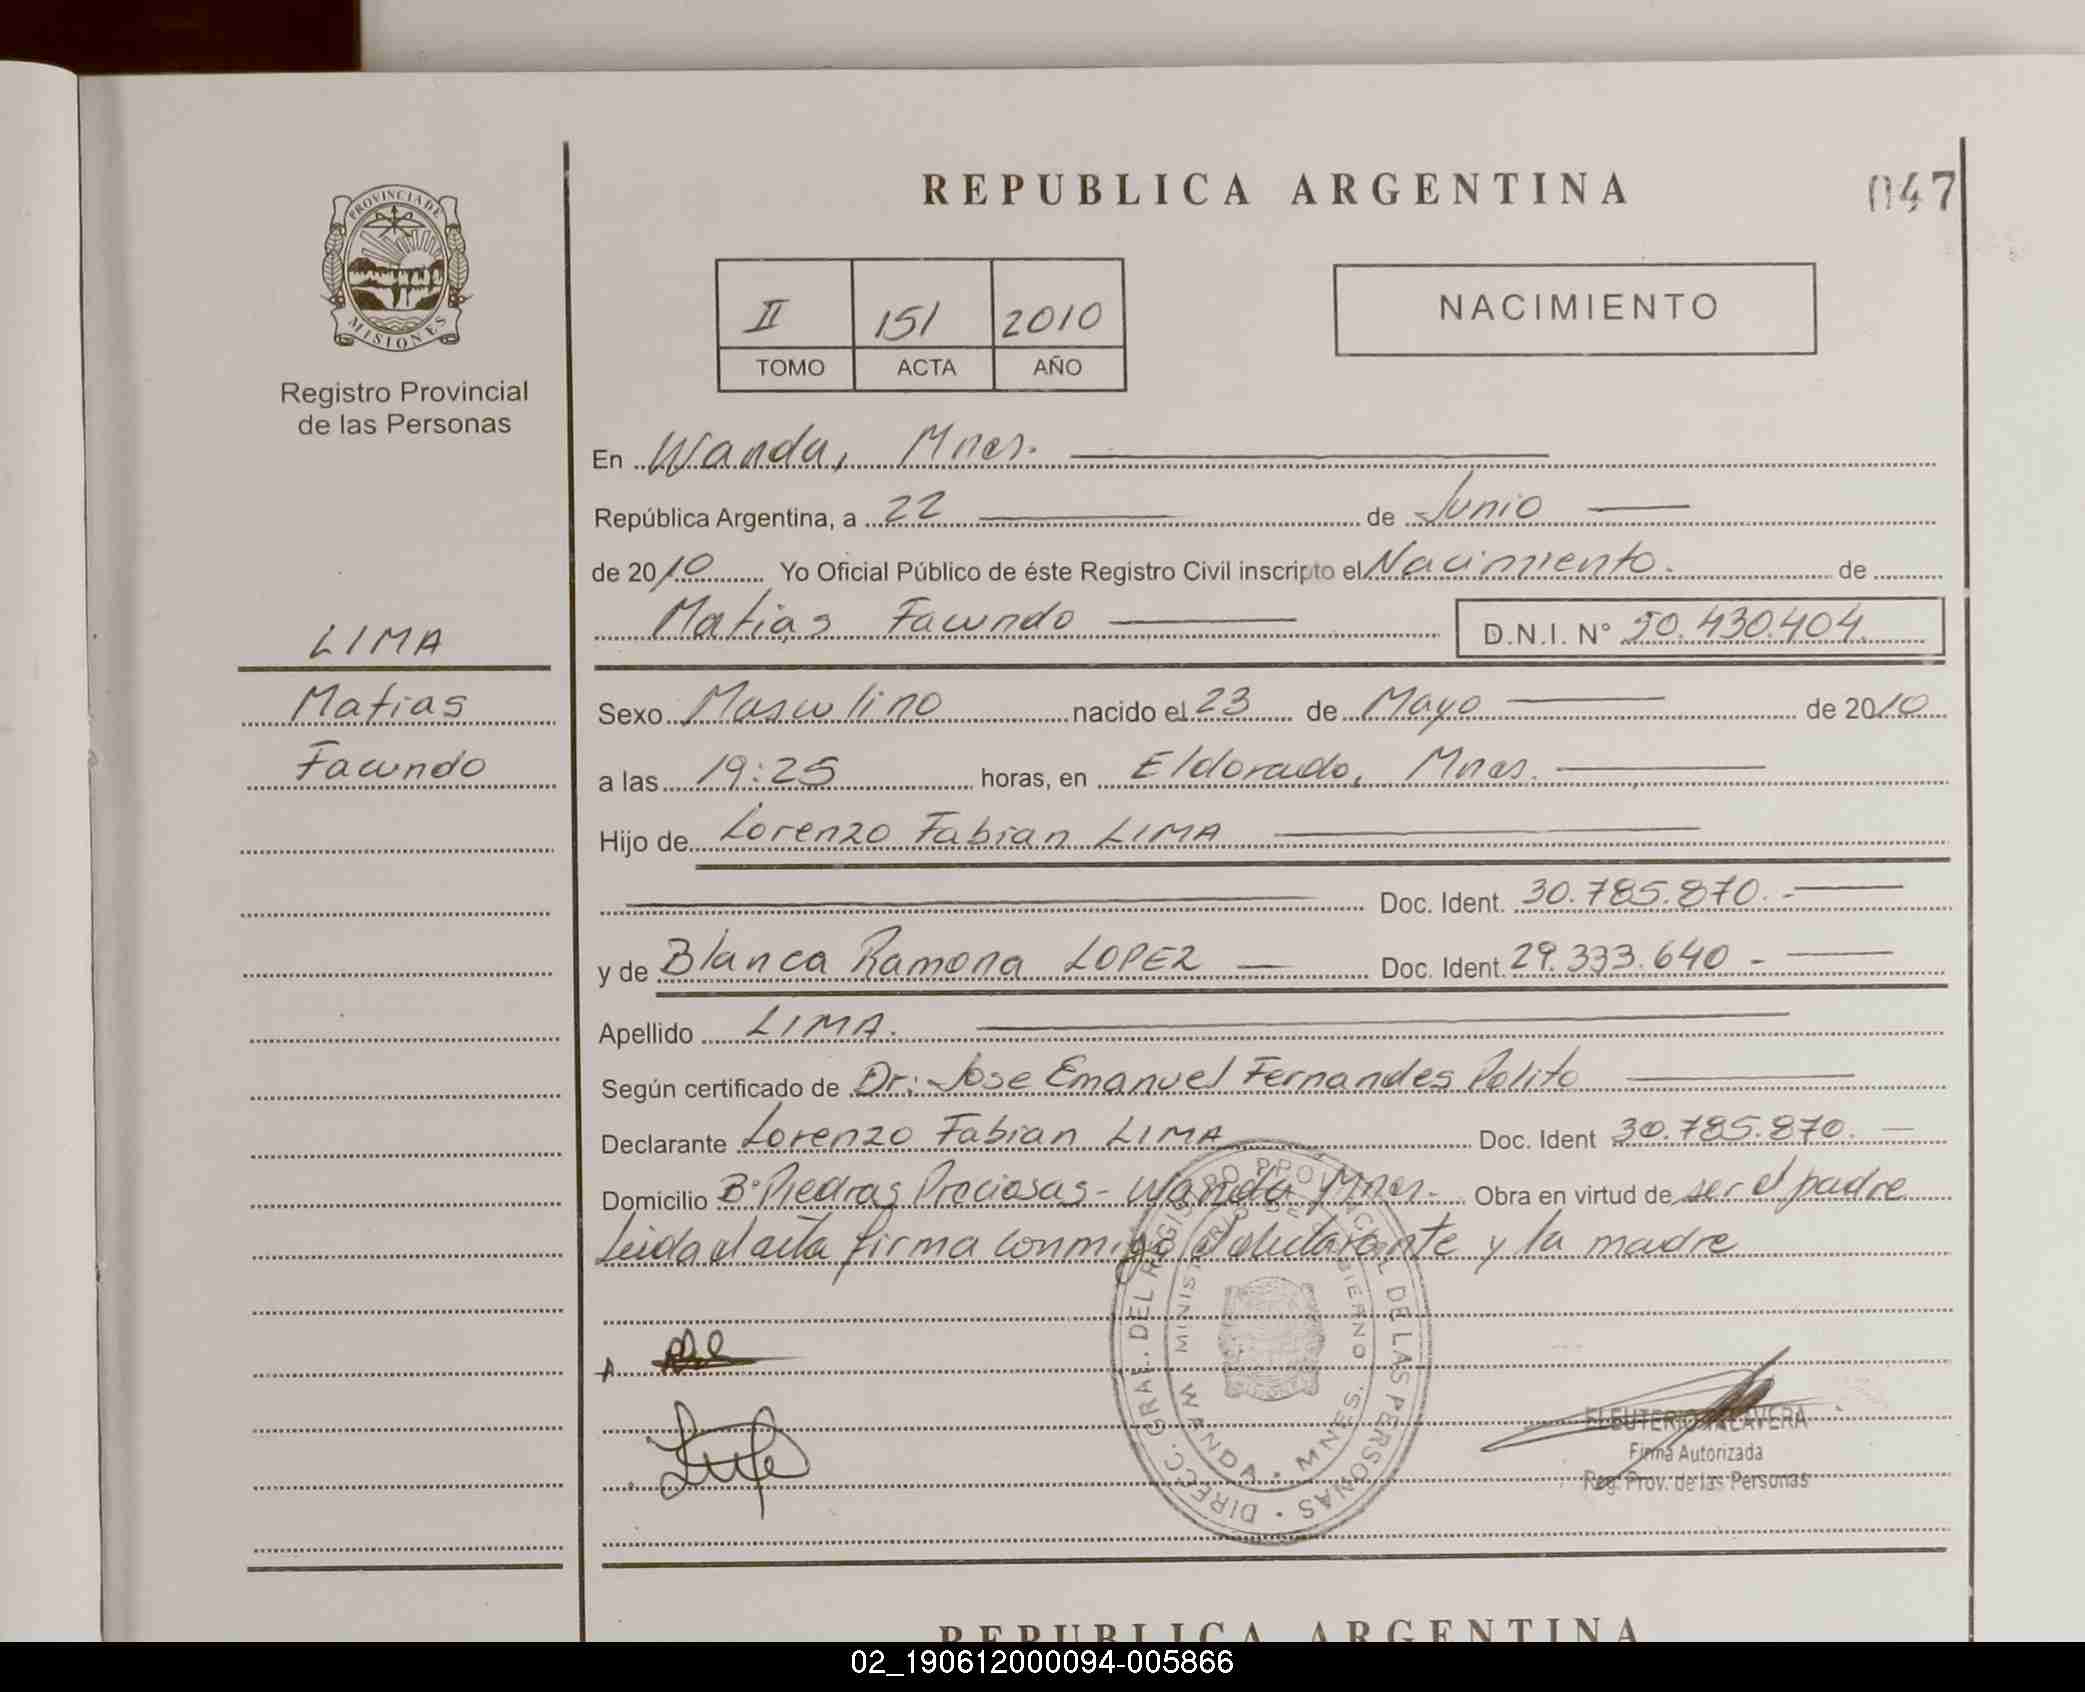 REPUBLICA ARGENTINA
047
PROVINCIA DE
MISIONES
Registro Provincial
de las Personas
II 151 2010
TOMO ACTA AÑO
NACIMIENTO
En Wanda, Mnes.
República Argentina, a 22 de Junio
de 2010 Yo Oficial Público de éste Registro Civil inscripto el Nacimiento. de
Matias Facundo D.N.I. N° 50.430.404
LIMA
Matias
Facundo
Sexo Masculino nacido el 23 de Mayo de 2010
a las 19:25 horas, en Eldorado, Mnes.
Hijo de Lorenzo Fabian LIMA
Doc. Ident. 30.785.870.-
y de Blanca Ramona LOPEZ Doc. Ident. 29.333.640-
Apellido LIMA.
Según certificado de Dr: Jose Emanuel Fernandes Polito
Declarante Lorenzo Fabian LIMA Doc. Ident 30.785.870.
Domicilio B° Piedras Preciosas - Wanda Mnes. Obra en virtud de ser el padre
Leida el acta firma conmigo el declarante y la madre
DIRECC. GRAL. DEL REGISTRO PROVINCIAL DE LAS PERSONAS
MINISTERIO DE GOBIERNO
WANDA • MNES.
ELEUTERIO TALAVERA
Firma Autorizada
Reg. Prov. de las Personas
REPUBLICA ARGENTINA
02_190612000094-005866